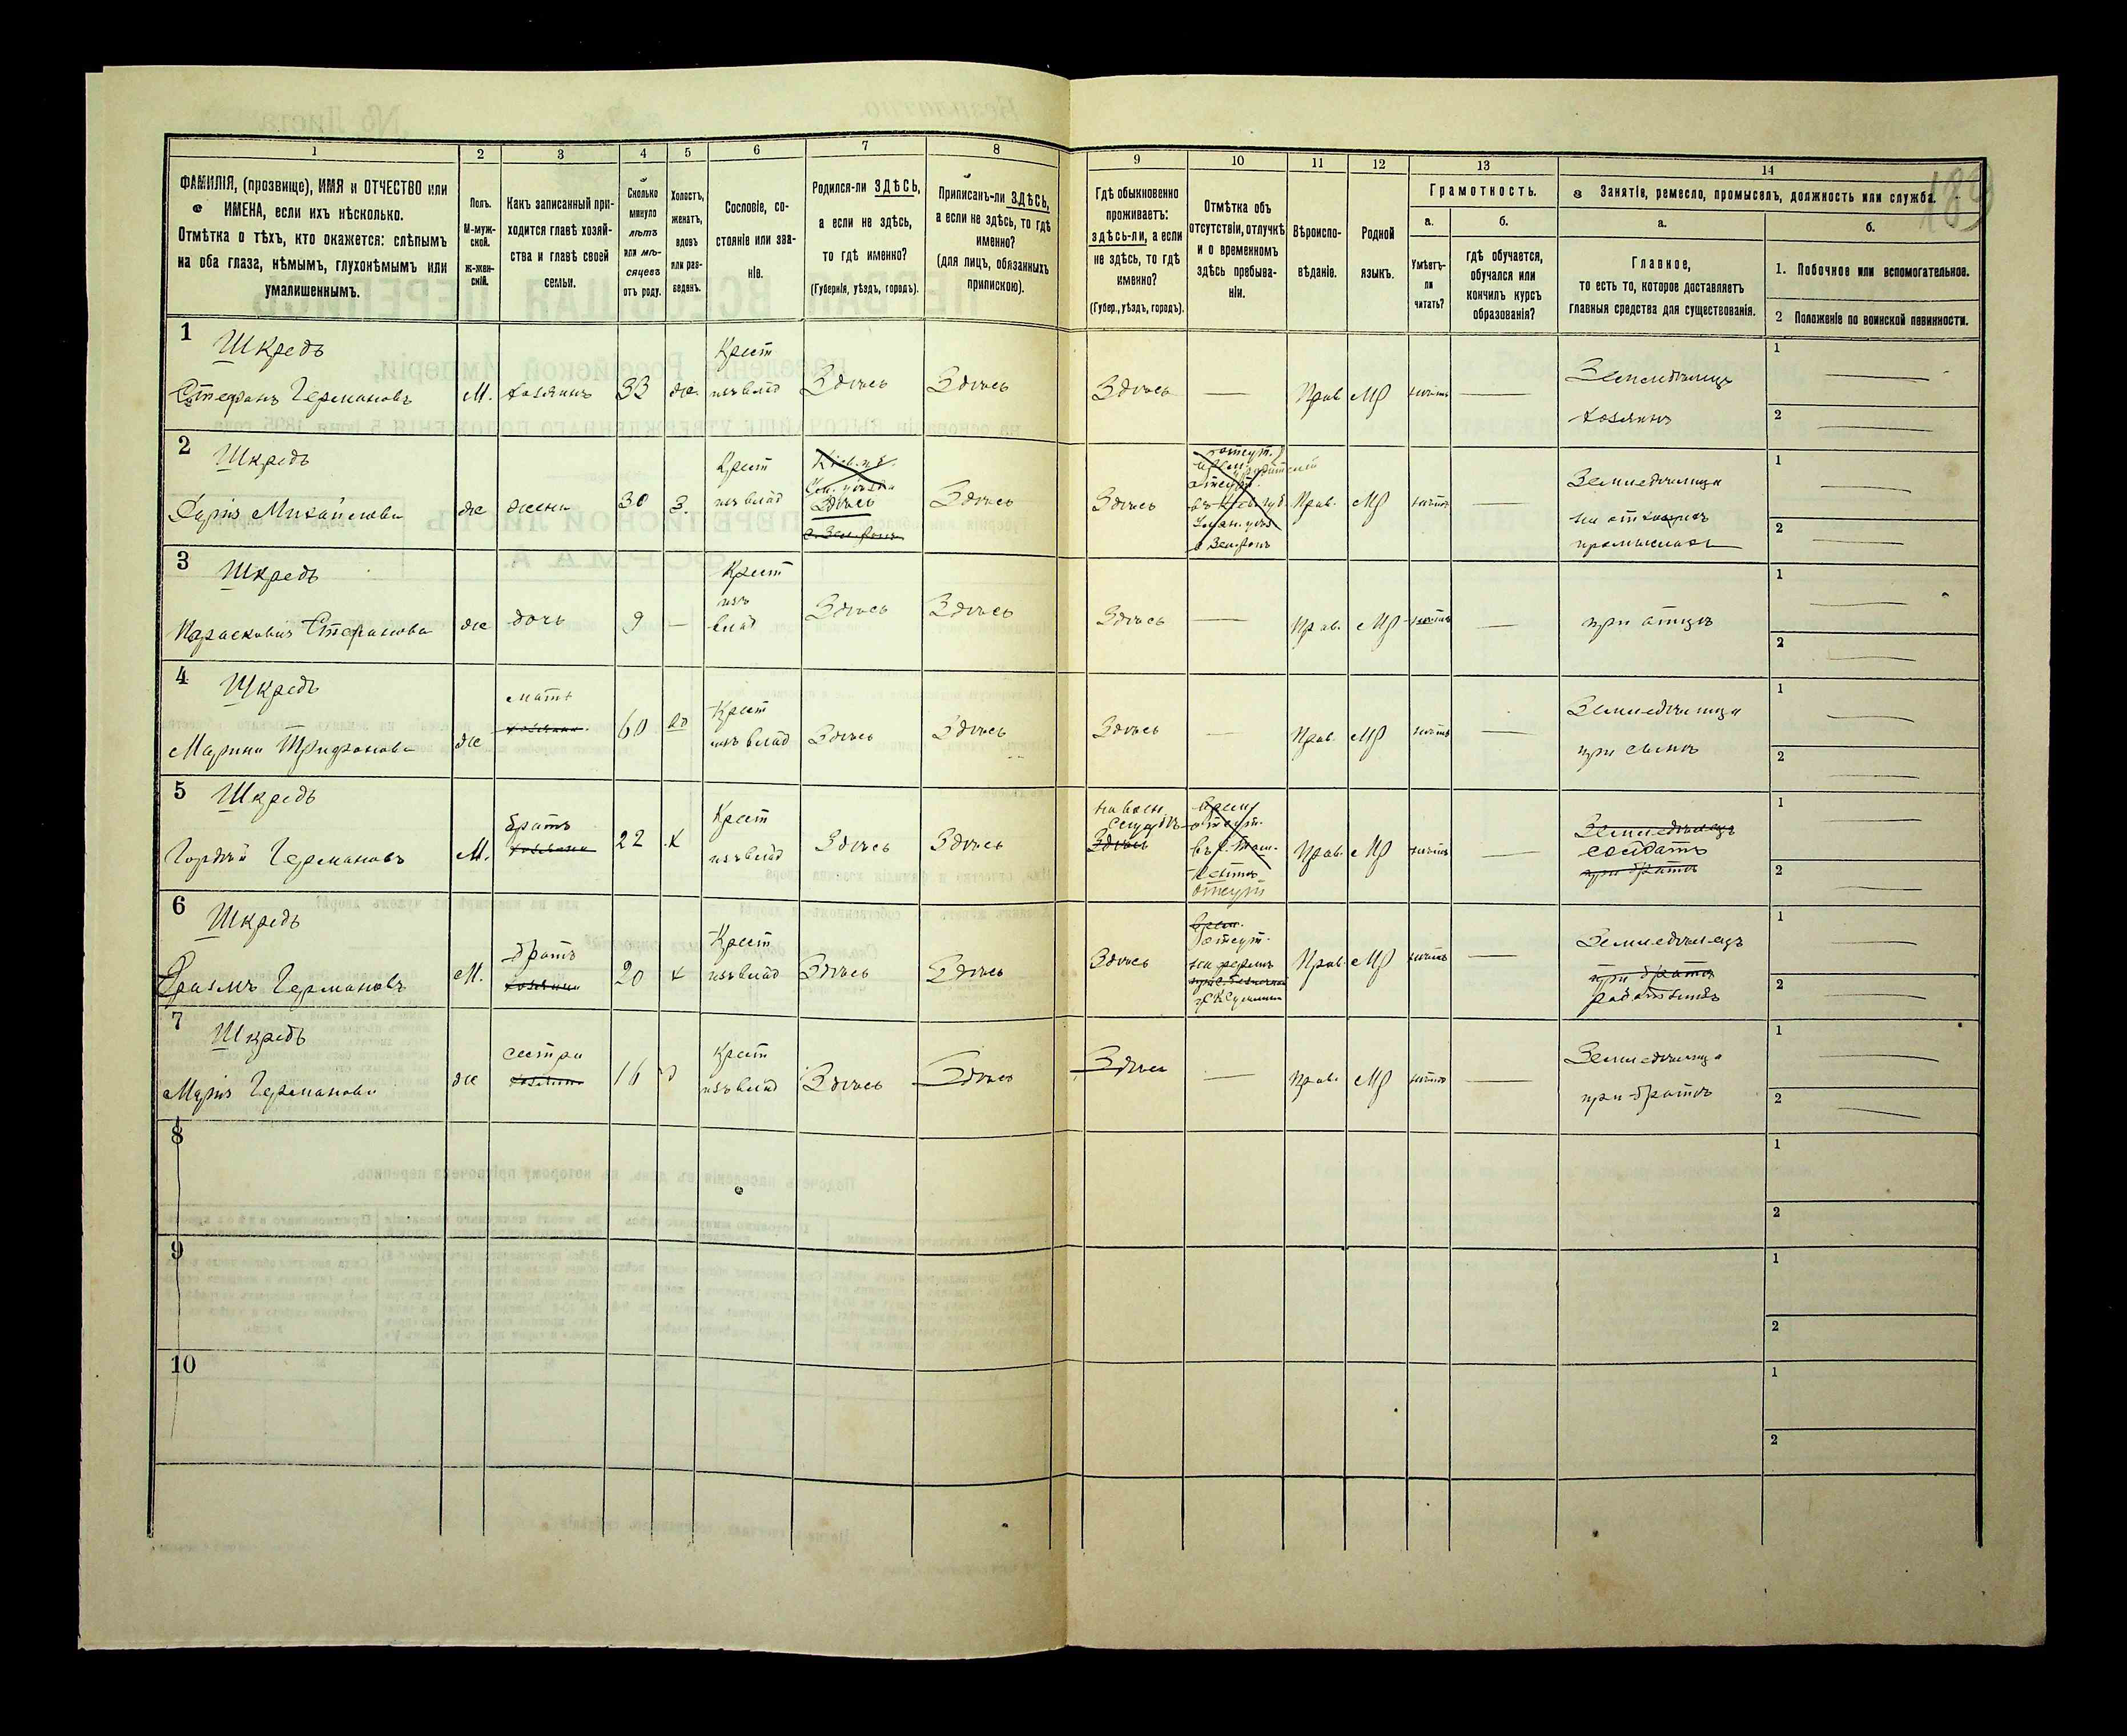 189
1 2 3 4 5 6 7 8 9 10 11 12 13 14
ФАМИЛІЯ, (прозвище), ИМЯ и ОТЧЕСТВО или
ИМЕНА, если ихъ нѣсколько.
Отмѣтка о тѣхъ, кто окажется: слѣпымъ
на оба глаза, нѣмымъ, глухонѣмымъ или
умалишеннымъ.
Полъ.
М-муж-
ской.
ж-жен-
скій.
Какъ записанный при-
ходится главѣ хозяй-
ства и главѣ своей
семьи.
Сколько
минуло
лѣтъ
или мѣ-
сяцевъ
отъ роду.
Холостъ,
женатъ,
вдовъ
или раз-
веденъ.
Сословіе, со-
стояніе или зва-
ніе.
Родился-ли ЗДѢСЬ,
а если не здѣсь,
то гдѣ именно?
(Губернія, уѣздъ, городъ).
Приписанъ-ли ЗДѢСЬ,
а если не здѣсь, то гдѣ
именно?
(для лицъ, обязанныхъ
припискою).
Гдѣ обыкновенно
проживаетъ:
здѣсь-ли, а если
не здѣсь, то гдѣ
именно?
(Губер., уѣздъ, городъ).
Отмѣтка объ
отсутствіи, отлучкѣ
и о временномъ
здѣсь пребыва-
ніи.
Вѣроиспо-
вѣданіе.
Родной
языкъ.
Грамотность.
а.
Умѣетъ-
ли
читать?
б.
гдѣ обучается,
обучался или
кончилъ курсъ
образованія?
Занятіе, ремесло, промыселъ, должность или служба.
а.
Главное,
то есть то, которое доставляетъ
главныя средства для существованія.
б.
1. Побочное или вспомогательное.
2 Положеніе по воинской повинности.
1 Шкредь Крест Земледѣлецъ 1
Стефанъ Германовъ М. хозяинъ 33 же. изъ влад Здѣсь Здѣсь Здѣсь — Прав МР нѣтъ — хозяинъ 2
2 Шкредь Крест Земледѣлица 1
Дарія Михайлова же жена 30 З. изъ влад Здѣсь Здѣсь Здѣсь Прав. МР нѣтъ — 2
3 Шкредь Крест 1
Параскевия Стефанова же дочь 9 — изъ влад Здѣсь Здѣсь Здѣсь — Прав. МР нѣтъ — при отцѣ 2
4 Шкредь мать Крест Земледѣлица 1
Марина Трифонова же 60 вд изъ влад Здѣсь Здѣсь Здѣсь — Прав. МР нѣтъ — при сынѣ 2
5 Шкредь братъ Крест Земледѣлецъ 1
Гордѣй Германовъ М. хозяина 22 х изъ влад Здѣсь Здѣсь Здѣсь отсут Прав. МР нѣтъ — солдатъ при братѣ 2
6 Шкредь братъ Крест Земледѣлецъ 1
Германовъ М. хозяина 20 х изъ влад Здѣсь Здѣсь Здѣсь Прав. МР нѣтъ — при братѣ 2
7 Шкредь сестра Крест Земледѣлица 1
Марія Германова же хозяина 16 д изъ влад Здѣсь Здѣсь Здѣсь — Прав. МР нѣтъ — при братѣ 2
8 1
2
9 1
2
10 1
2